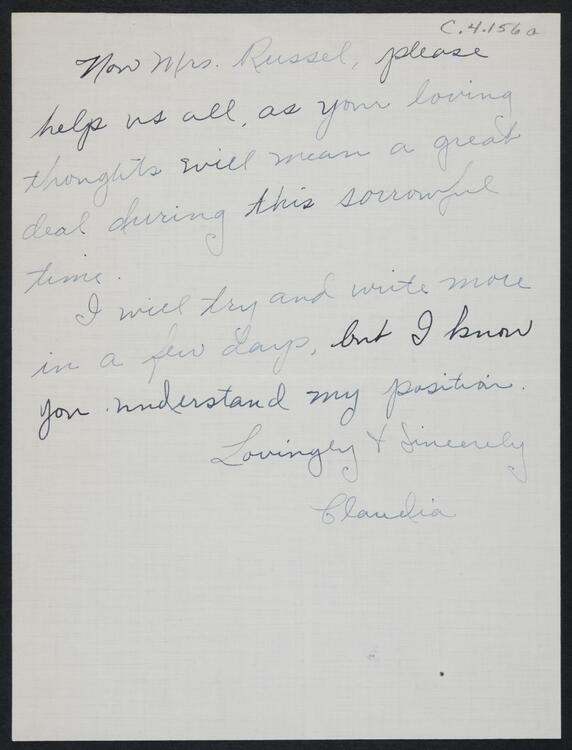 C.4.156a
Now Mrs. Russel, please
help us all, as your loving
thoughts will mean a great
deal during this sorrowful
time.
I will try and write more
in a few days, but I know
you understand my position.
Lovingly & Sincerely
Claudia